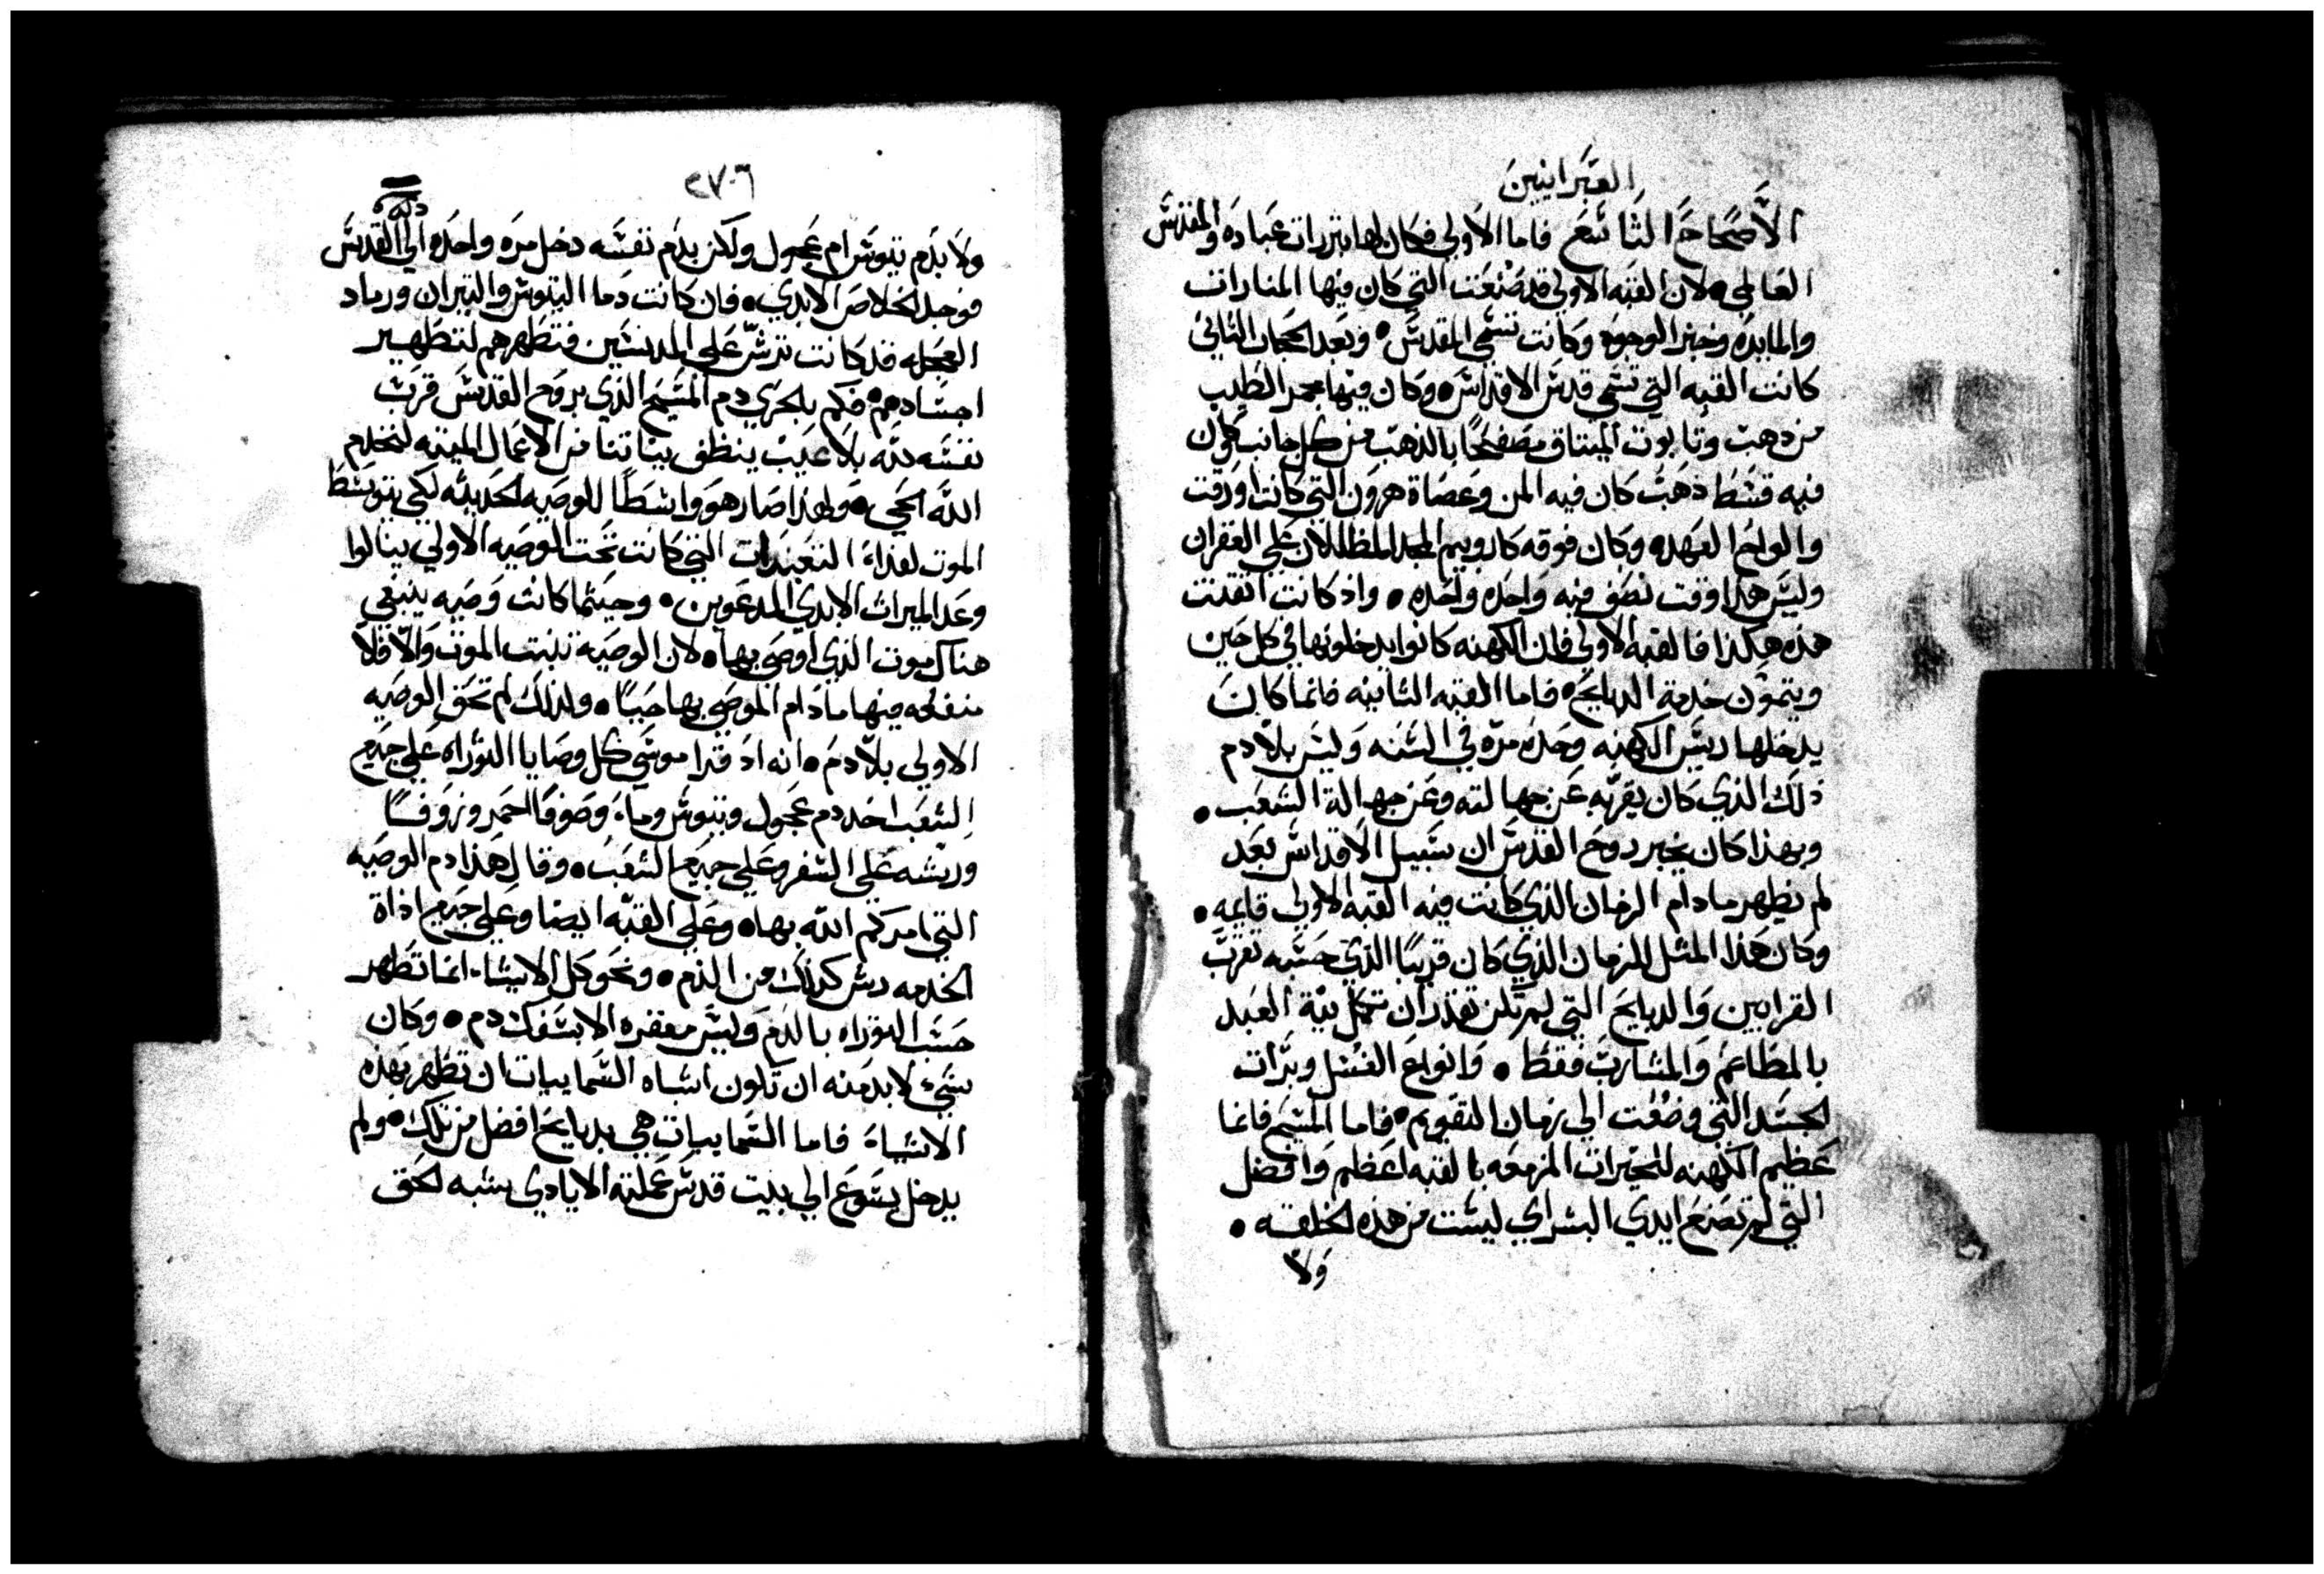 العبرانيين
الاصحاح التاسع فاما الاولي فكان لها تبررات عباده والمقدس
العالمي• لان القبه الاولي قد صنعت التي كان فيها المنارات
والمايده وخبز الوجوه وكانت تسمي المقدس• وبعد الحجاب الثاني
كانت القبه التي تسمي قدس الاقداس• وكان فيها مجمر الطيب
من دهب وتابوت الميتاق مصفحًا بالذهب من كل جانب كون
فيه قشط ذهب كان فيه المن وعصاة هرون التي كانت اورقت
والواح العهده وكان فوقه كاروبيم المجد المظللان علي الغفران
وليس هذا وقت نصف فيه واحده واحده• واذ كانت اتقنت
هذه هكذا فالقبه الاولي فان الكهنه كانوا يدخلونها في كل حين
ويتمون خدمة الدبايح• فاما القبه التانيه فانما كان
يدخلها رييس الكهنه وحده مره في السنه وليس بلا دم
ذلك الذي كان يقربه عن جهالته وعن جهالة الشعب•
وبهذا كان يخبر روح القدس ان سبيل الاقداس بعد
لم تظهر مادام الزمان الذي كانت فيه القبه الاولي قايمه•
وكان هذا المثل للزمان الذي كان قريبًا الذي حسبه تقرب
القرابين والدبايح التي لم تكن تقدر ان تكمل نية العبد
بالمطاعم والمشارب فقط• وانواع الغسل وبرات
الجسد التي وضعت الي زمان التقويم• فاما المسيح فانما
عظيم الكهنه للخيرات المزمعه بالقبه اعظم وافضل
التي لم تصنع ايدي البشر اي ليست من هذه الخلقه•
ولا
٢٧٠٦
ولا بدم تيوس ام عجول ولكن بدم نفسه دخل مره واحده الي القدس
فوجد الخلاص الابدي• فان كانت دما التيوس والتيران ورماد
العجله قد كانت ترش علي المدنسين فتطهرهم لتطهير
اجسادهم• فكم بالحري دم المسيح الذي بروح القدس قرب
نفسه لله بلا عيب ينظف نياتنا من الاعمال الميته لنخدم
الله الحي• ولهذا صار هو واسطًا للوصيه الحديثه لكي يتوسط
الموت لفداء التعديات التي كانت تحت الوصيه الاولي ينالوا
وعد الميراث الابدي المدعوين• وحيثما كانت وصيه ينبغي
هناك موت الذي اوصي بها• لان الوصيه تثبت الموت والا فلا
منفعه فيها مادام الموصي بها حييًا• ولذلك لم تحق الوصيه
الاولي بلا دم• انه اذ قرا موسي كل وصايا التوراه علي جميع
الشعب اخد دم عجول وتيوس وما وصوفًا احمر وزوفًا
ورشه علي السفر وعلي جميع الشعب• وقال هذا دم الوصيه
التي امركم الله بها• وعلي القبه ايضا وعلي جميع اداة
الخدمه رش كذلك من الدم• ونحو كل الاشياء انما تطهر
حسب التوراه بالدم وليس مغفره الا بسفك دم• وكان
شي لابد منه ان تكون اشباه السماييات ان تطهر بهذه
الاشياء فاما السماييات هي بدبايح افضل من تلك• ولم
يدخل يسوع الي بيت قدس عملته الايادي شبه الحق